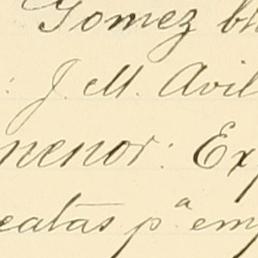 Gomez
: J. M. Avil
nenor: Ex
catas p.ª em